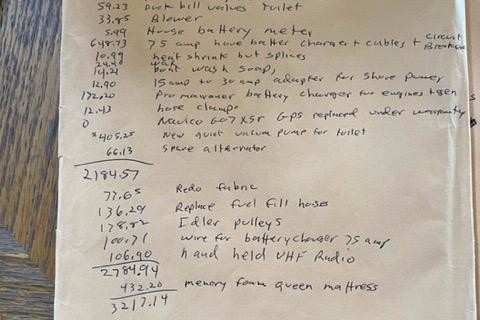 59.23 Duck bill valves toilet
33.85 Blower
5.99 House battery meter
648.73 75 amp house batter charger + cables + circuit Breaker
10.99 heat shrink but splices
24.40 wax
14.21 Boat wash soap,
12.90 15 amp to 30 amp adapter for shore power
172.20 Pro mawaner battery charger for engines + gen
12.43 hose clamps
0 Navico GO7 XSR GPS replaced under warranty
*405.25 New quiet vacum pump for toilet
66.13 spare alternator
2184.57
77.65 Redo fabric
136.29 Replace fuel fill hoses
178.82 Idler pulleys
100.71 wire for battery charger 75 amp
106.90 hand held VHF Radio
2784.94
432.20 memory foam queen mattress
3217.14